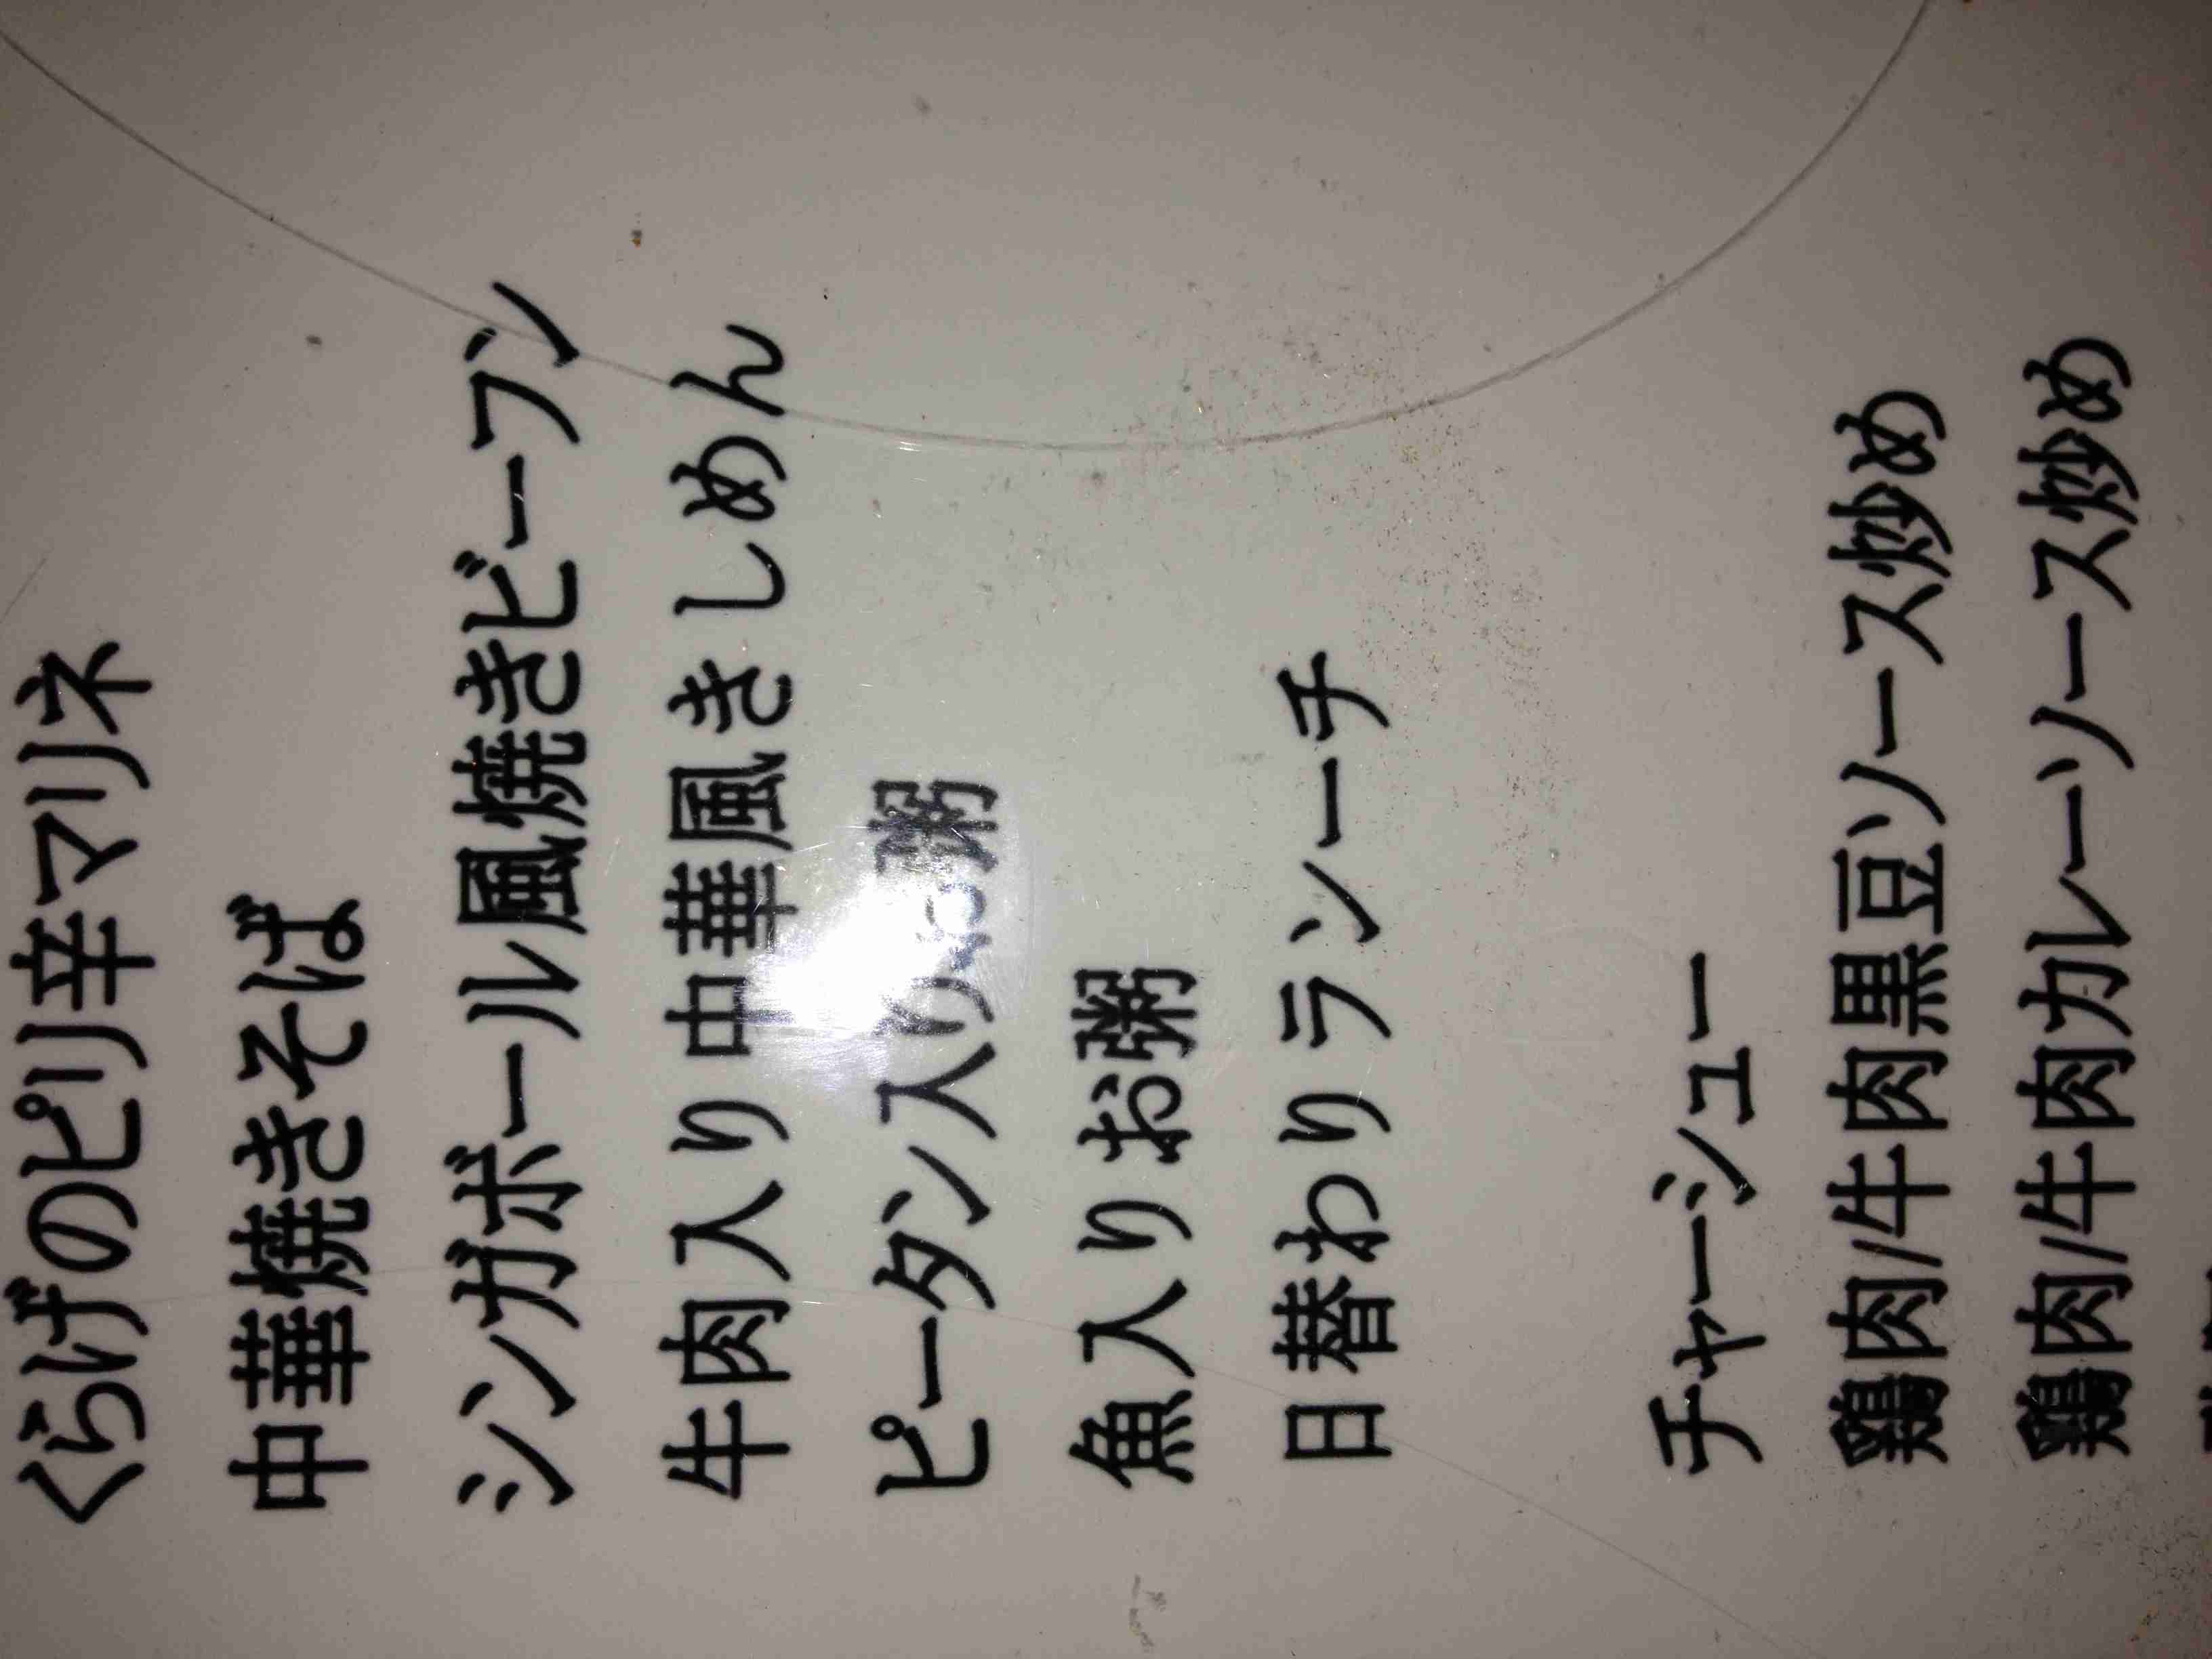 くらげのピリ辛マリネ
中華焼きそば
シンガポール風焼きビーフン
牛肉入り中華風きしめん
ピータン入りお粥
魚入りお粥
日替わりランチ
チャーシュー
鶏肉/牛肉黒豆ソース炒め
鶏肉/牛肉カレーソース炒め